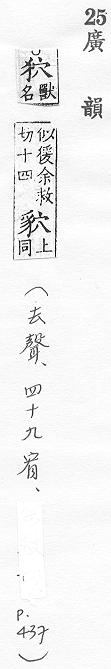 25 廣韻
狖 獸名
似猨余救切十四 貁 上同
(去聲、四十九宥、 p. 437)